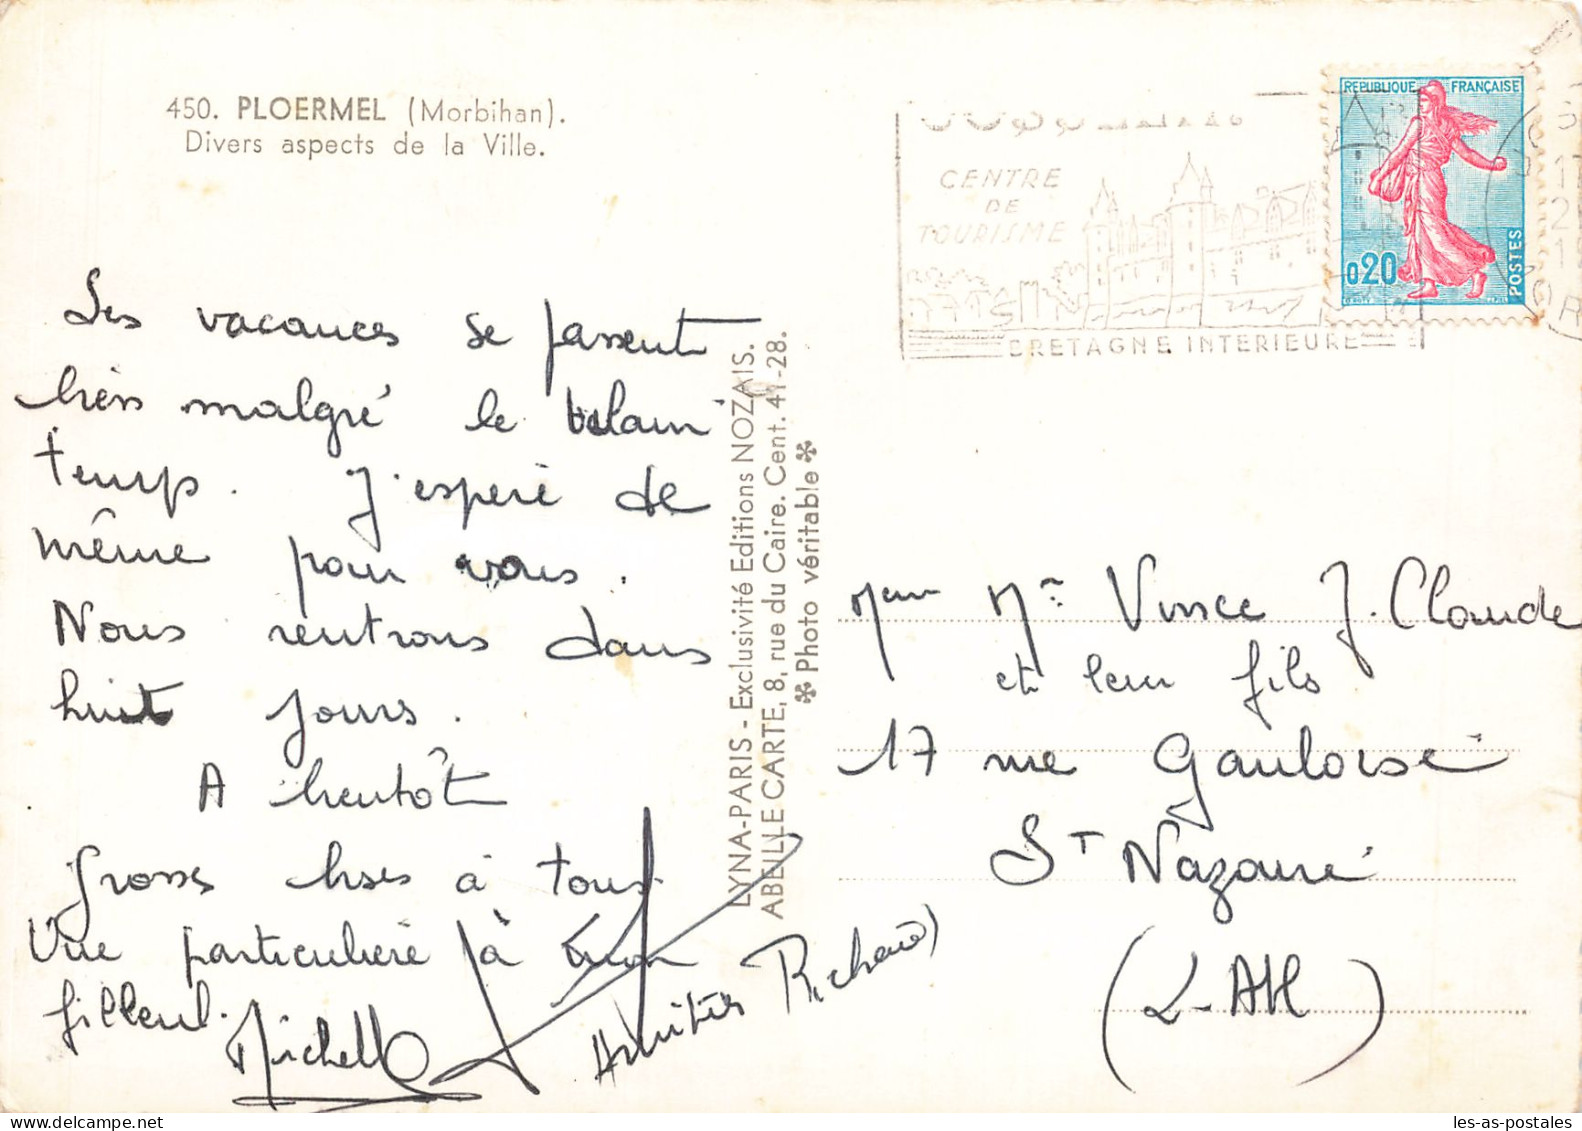 450. PLOERMEL (Morbihan).
Divers aspects de la Ville.
Les vacances se passent
bien malgré le vilain
temps. J'espère de
même pour vous.
Nous rentrons dans
huit jours.
A bientôt
Grosses bises à tous
Une particulière à mon
filleul.
Michelle
Amitiés Richard
LYNA-PARIS - Exclusivité Editions NOZAIS.
ABEILLE CARTE, 8, rue du Caire. Cent. 41-28.
Photo véritable
CENTRE
DE
TOURISME
BRETAGNE INTERIEURE
REPUBLIQUE FRANÇAISE
0,20
POSTES
Mr Vince J. Claude
et leur fils
17 rue Gauloise
St Nazaire
(L-Atl)
les-as-postales